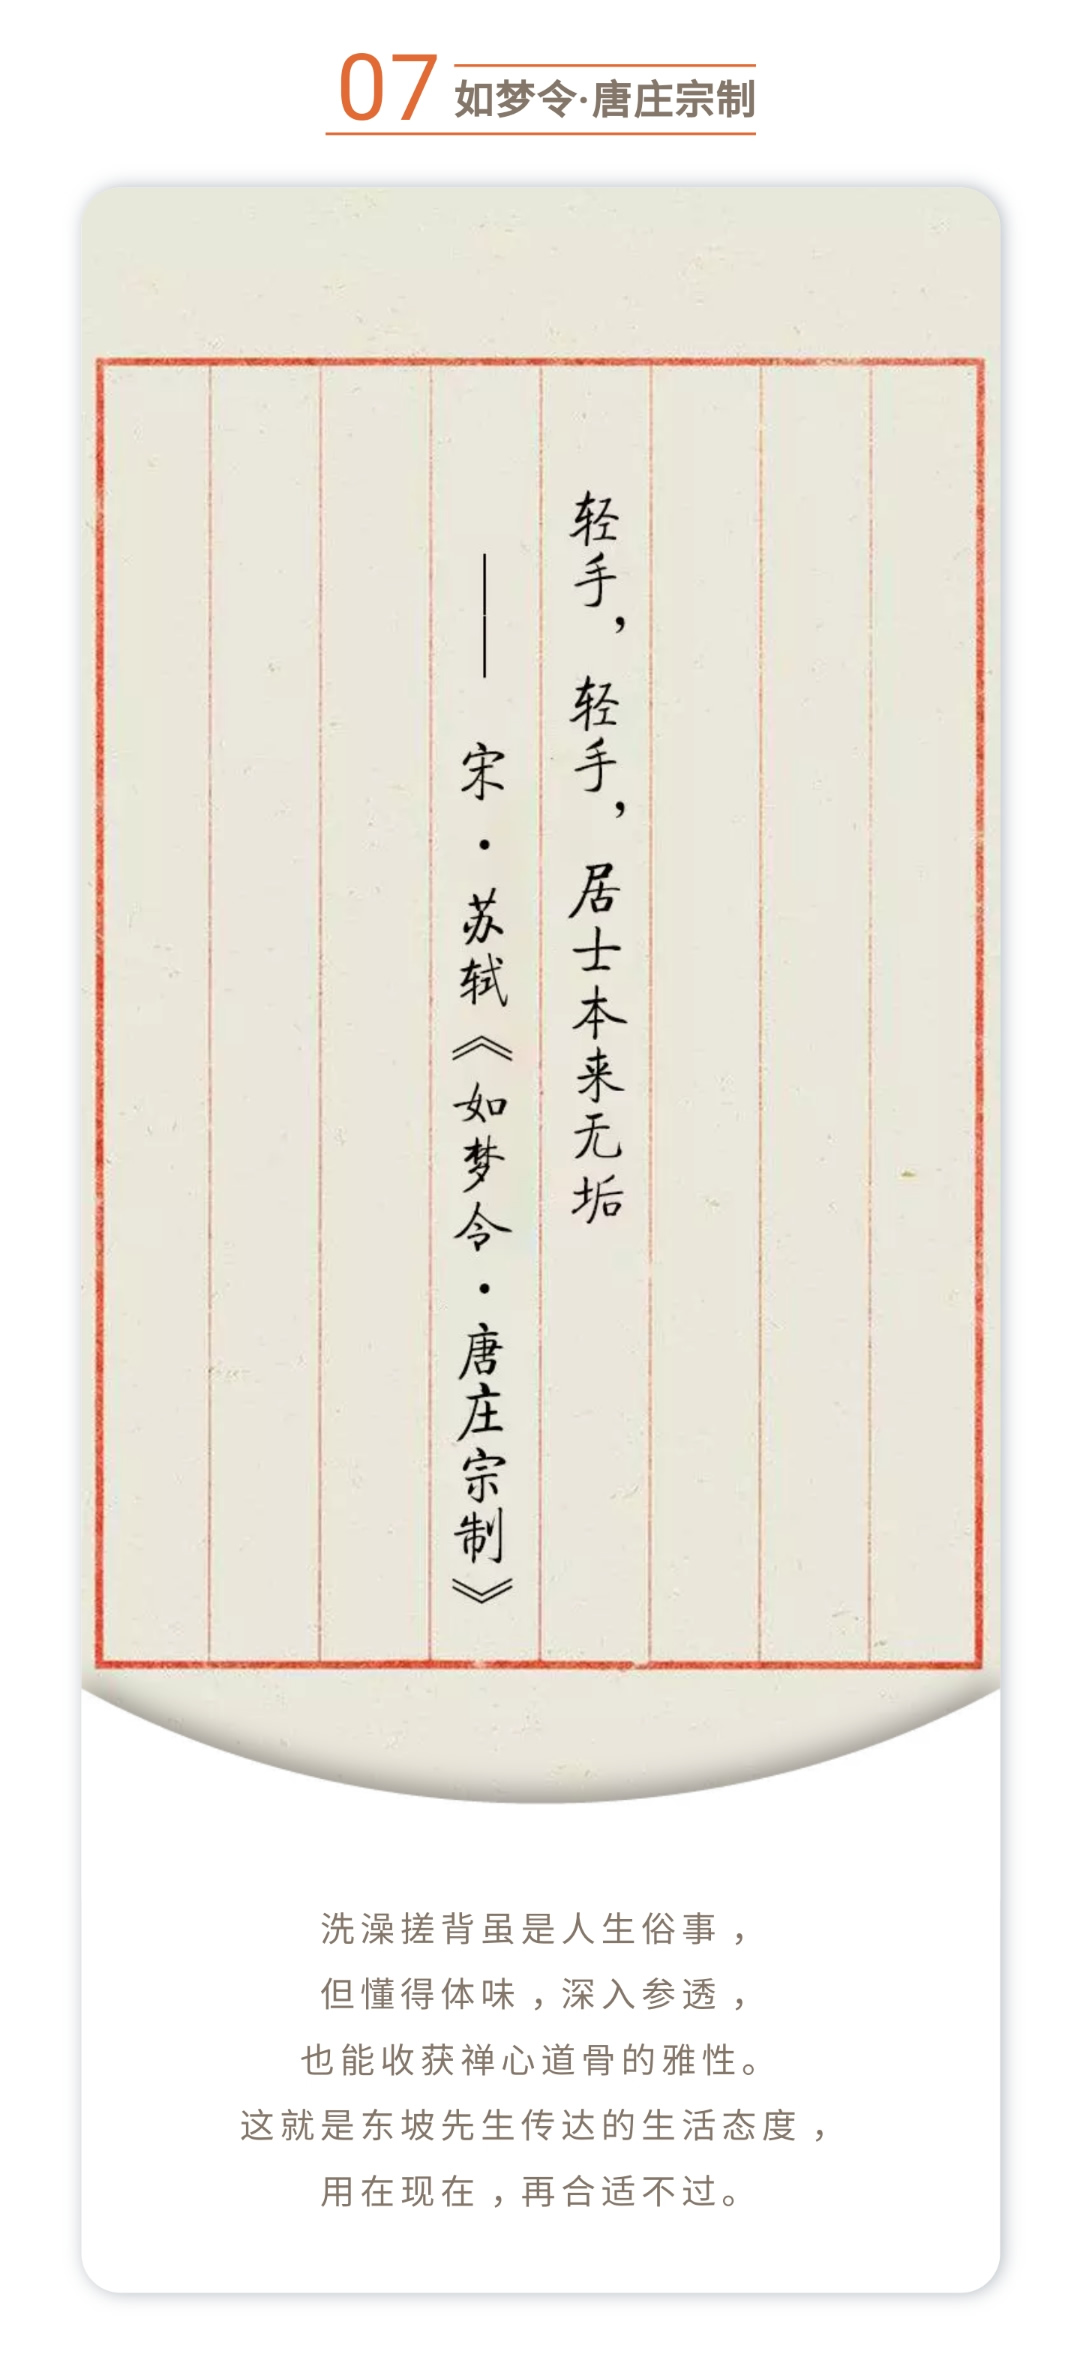 07 如梦令·唐庄宗制
轻手，轻手，居士本来无垢
——宋·苏轼《如梦令·唐庄宗制》
洗澡搓背虽是人生俗事，
但懂得体味，深入参透，
也能收获禅心道骨的雅性。
这就是东坡先生传达的生活态度，
用在现在，再合适不过。